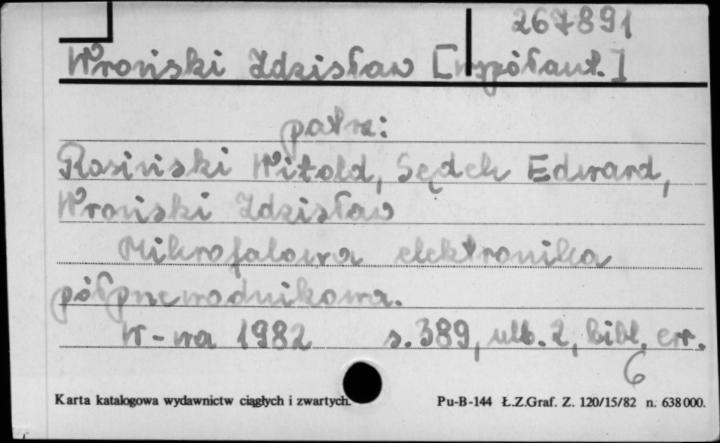 267891
Wroński Zdzisław [współaut.]
patrz:
Rosiński Witold, Sędek Edward,
Wroński Zdzisław
Mikrofalowa elektronika
półprzewodnikowa.
W-wa 1982 s. 389, nlb. 2, bibl. err.
6
Karta katalogowa wydawnictw ciągłych i zwartych. Pu-B-144 Ł.Z.Graf. Z. 120/15/82 n. 638000.